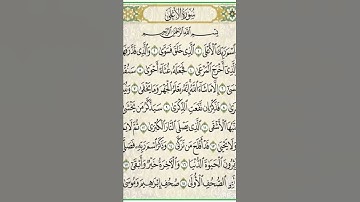 سُورَةُ الْأَعْلَىٰ
بِسْمِ اللَّهِ الرَّحْمَٰنِ الرَّحِيمِ
اسْمَ رَبِّكَ الْأَعْلَى ۝١ الَّذِي خَلَقَ فَسَوَّىٰ ۝٢ وَالَّذِي قَدَّرَ
الَّذِي أَخْرَجَ الْمَرْعَىٰ ۝٤ فَجَعَلَهُ غُثَاءً أَحْوَىٰ ۝٥
إِلَّا مَا شَاءَ اللَّهُ إِنَّهُ يَعْلَمُ الْجَهْرَ وَمَا يَخْفَىٰ
فَذَكِّرْ إِن نَّفَعَتِ الذِّكْرَىٰ ۝٩ سَيَذَّكَّرُ مَن يَخْشَىٰ
الْأَشْقَى ۝١١ الَّذِي يَصْلَى النَّارَ الْكُبْرَىٰ ۝١٢ ثُمَّ لَا
وَلَا يَحْيَىٰ ۝١٣ قَدْ أَفْلَحَ مَن تَزَكَّىٰ ۝١٤ وَذَكَرَ اسْمَ رَبِّهِ فَصَلَّىٰ
الْحَيَوٰةَ الدُّنْيَا ۝١٦ وَالْآخِرَةُ خَيْرٌ وَأَبْقَىٰ
الصُّحُفِ الْأُولَىٰ ۝١٨ صُحُفِ إِبْرَاهِيمَ وَمُوسَىٰ